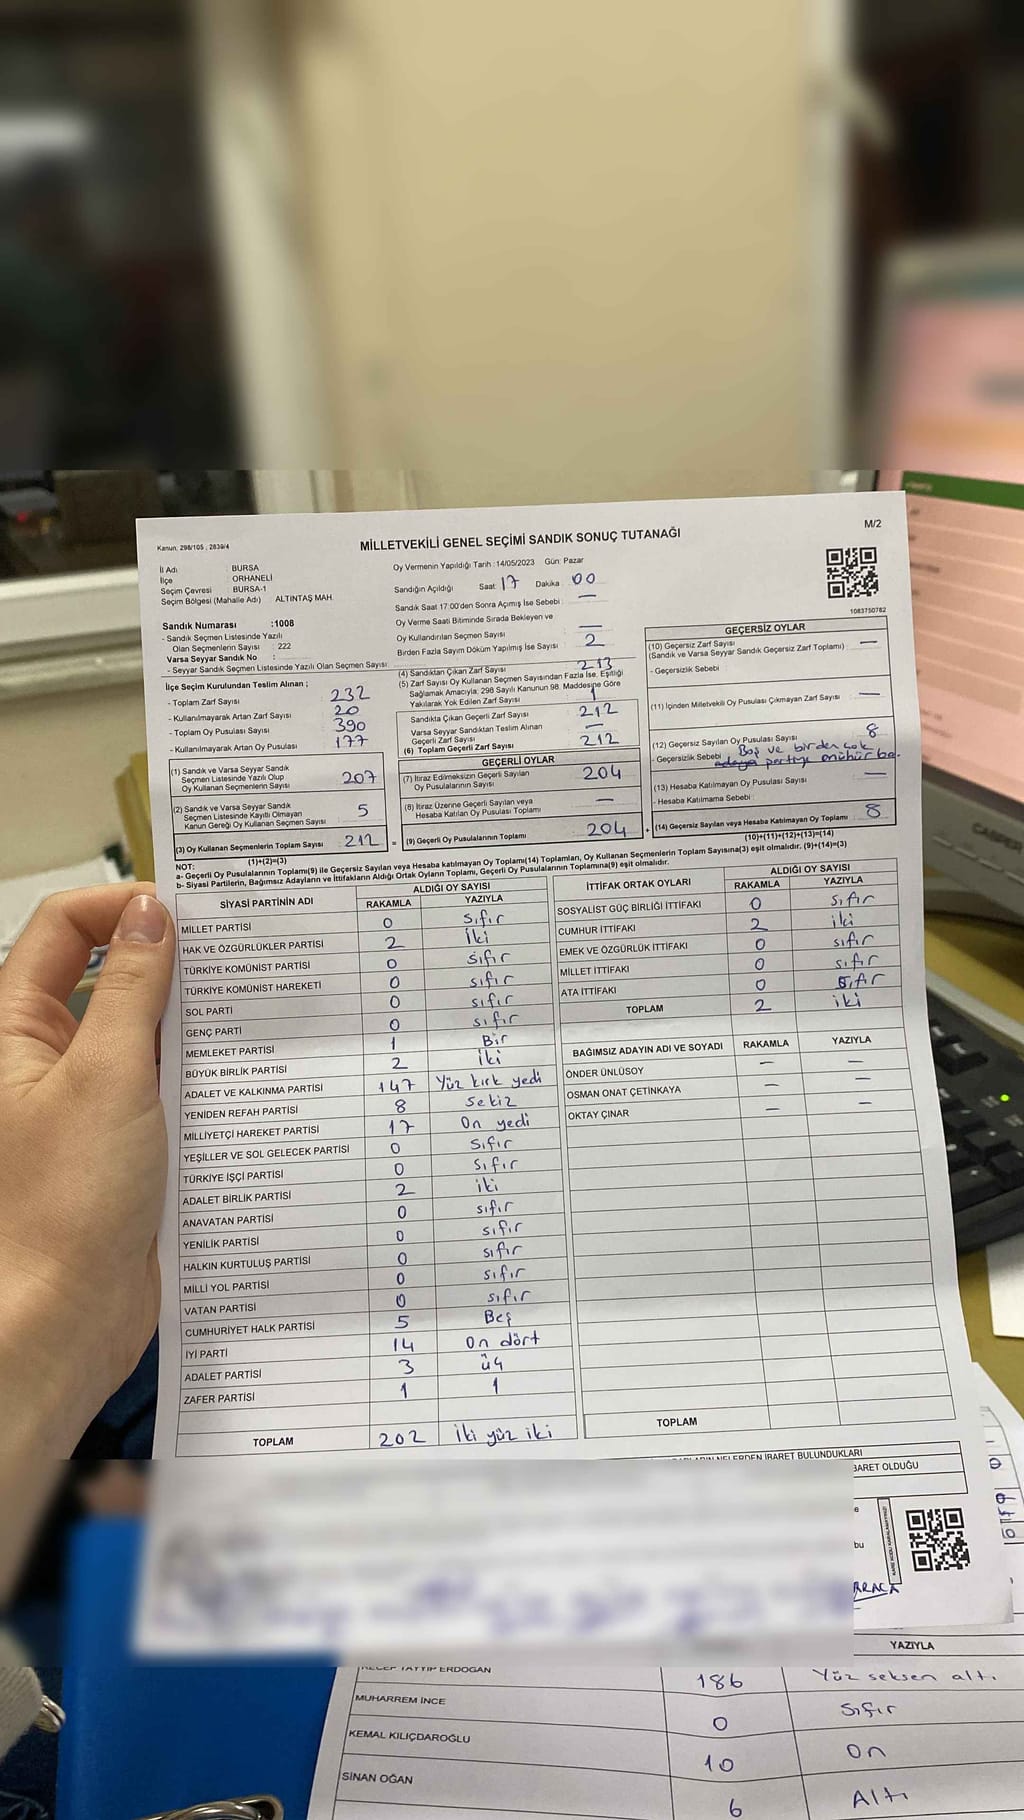 Kanun: 298/105 , 2839/4
MİLLETVEKİLİ GENEL SEÇİMİ SANDIK SONUÇ TUTANAĞI
M/2
İl Adı : BURSA
İlçe : ORHANELİ
Seçim Çevresi : BURSA-1
Seçim Bölgesi (Mahalle Adı) ALTINTAŞ MAH.
Sandık Numarası :1008
- Sandık Seçmen Listesinde Yazılı
Olan Seçmenlerin Sayısı : 222
Varsa Seyyar Sandık No :
- Seyyar Sandık Seçmen Listesinde Yazılı Olan Seçmen Sayısı:
Oy Vermenin Yapıldığı Tarih :14/05/2023 Gün: Pazar
Sandığın Açıldığı Saat: 17 Dakika: 00
Sandık Saat 17:00'den Sonra Açımış İse Sebebi : —
Oy Verme Saati Bitiminde Sırada Bekleyen ve
Oy Kullandırılan Seçmen Sayısı —
Birden Fazla Sayım Döküm Yapılmış İse Sayısı : 2
1083750782
İlçe Seçim Kurulundan Teslim Alınan ;
- Toplam Zarf Sayısı : 232
- Kullanılmayarak Artan Zarf Sayısı : 20
- Toplam Oy Pusulası Sayısı : 390
- Kullanılmayarak Artan Oy Pusulası : 177
(1) Sandık ve Varsa Seyyar Sandık
Seçmen Listesinde Yazılı Olup
Oy Kullanan Seçmenlerin Sayısı : 207
(2) Sandık ve Varsa Seyyar Sandık
Seçmen Listesinde Kayıtlı Olmayan
Kanun Gereği Oy Kullanan Seçmen Sayısı : 5
(3) Oy Kullanan Seçmenlerin Toplam Sayısı : 212
(1)+(2)=(3)
(4) Sandıktan Çıkan Zarf Sayısı 213
(5) Zarf Sayısı Oy Kullanan Seçmen Sayısından Fazla İse, Eşitliği
Sağlamak Amacıyla; 298 Sayılı Kanunun 98. Maddesine Göre
Yakılarak Yok Edilen Zarf Sayısı 1
Sandıkta Çıkan Geçerli Zarf Sayısı 212
Varsa Seyyar Sandıktan Teslim Alınan
Geçerli Zarf Sayısı —
(6) Toplam Geçerli Zarf Sayısı 212
GEÇERLİ OYLAR
(7) İtiraz Edimeksizin Geçerli Sayılan
Oy Pusulalarının Sayısı 204
(8) İtiraz Üzerine Geçerli Sayılan veya
Hesaba Katılan Oy Pusulası Toplamı —
= (9) Geçerli Oy Pusulalarının Toplamı 204 +
GEÇERSİZ OYLAR
(10) Geçersiz Zarf Sayısı
(Sandık ve Varsa Seyyar Sandık Geçersiz Zarf Toplamı) —
- Geçersizlik Sebebi
(11) İçinden Milletvekili Oy Pusulası Çıkmayan Zarf Sayısı —
(12) Geçersiz Sayılan Oy Pusulası Sayısı 8
- Geçersizlik Sebebi Boş ve birden çok
adaya partiye mühür ba.
(13) Hesaba Katılmayan Oy Pusulası Sayısı —
- Hesaba Katılmama Sebebi
(14) Geçersiz Sayılan veya Hesaba Katılmayan Oy Toplamı 8
(10)+(11)+(12)+(13)=(14)
NOT:
a- Geçerli Oy Pusulalarının Toplamı(9) ile Geçersiz Sayılan veya Hesaba katılmayan Oy Toplamı(14) Toplamları, Oy Kullanan Seçmenlerin Toplam Sayısına(3) eşit olmalıdır. (9)+(14)=(3)
b- Siyasi Partilerin, Bağımsız Adayların ve İttifakların Aldığı Ortak Oyların Toplamı, Geçerli Oy Pusulalarının Toplamına(9) eşit olmalıdır.
SİYASİ PARTİNİN ADI ALDIĞI OY SAYISI
RAKAMLA YAZIYLA
MİLLET PARTİSİ 0 sıfır
HAK VE ÖZGÜRLÜKLER PARTİSİ 2 İki
TÜRKİYE KOMÜNİST PARTİSİ 0 sıfır
TÜRKİYE KOMÜNİST HAREKETİ 0 sıfır
SOL PARTİ 0 sıfır
GENÇ PARTİ 0 sıfır
MEMLEKET PARTİSİ 1 Bir
BÜYÜK BİRLİK PARTİSİ 2 İki
ADALET VE KALKINMA PARTİSİ 147 Yüz kırk yedi
YENİDEN REFAH PARTİSİ 8 sekiz
MİLLİYETÇİ HAREKET PARTİSİ 17 On yedi
YEŞİLLER VE SOL GELECEK PARTİSİ 0 sıfır
TÜRKİYE İŞÇİ PARTİSİ 0 sıfır
ADALET BİRLİK PARTİSİ 2 iki
ANAVATAN PARTİSİ 0 sıfır
YENİLİK PARTİSİ 0 sıfır
HALKIN KURTULUŞ PARTİSİ 0 sıfır
MİLLİ YOL PARTİSİ 0 sıfır
VATAN PARTİSİ 0 sıfır
CUMHURİYET HALK PARTİSİ 5 Beş
İYİ PARTİ 14 On dört
ADALET PARTİSİ 3 üç
ZAFER PARTİSİ 1 1
TOPLAM 202 İki yüz iki
İTTİFAK ORTAK OYLARI ALDIĞI OY SAYISI
RAKAMLA YAZIYLA
SOSYALİST GÜÇ BİRLİĞİ İTTİFAKI 0 sıfır
CUMHUR İTTİFAKI 2 iki
EMEK VE ÖZGÜRLÜK İTTİFAKI 0 sıfır
MİLLET İTTİFAKI 0 sıfır
ATA İTTİFAKI 0 sıfır
TOPLAM 2 iki
BAĞIMSIZ ADAYIN ADI VE SOYADI RAKAMLA YAZIYLA
ÖNDER ÜNLÜSOY — —
OSMAN ONAT ÇETİNKAYA — —
OKTAY ÇINAR — —
TOPLAM
İBARET BULUNDUKLARI
BARET OLDUĞU
e
bu
CASPER
YAZIYLA
RECEP TAYYİP ERDOĞAN 186 Yüz seksen altı
MUHARREM İNCE 0 Sıfır
KEMAL KILIÇDAROĞLU 10 On
SİNAN OĞAN 6 Altı